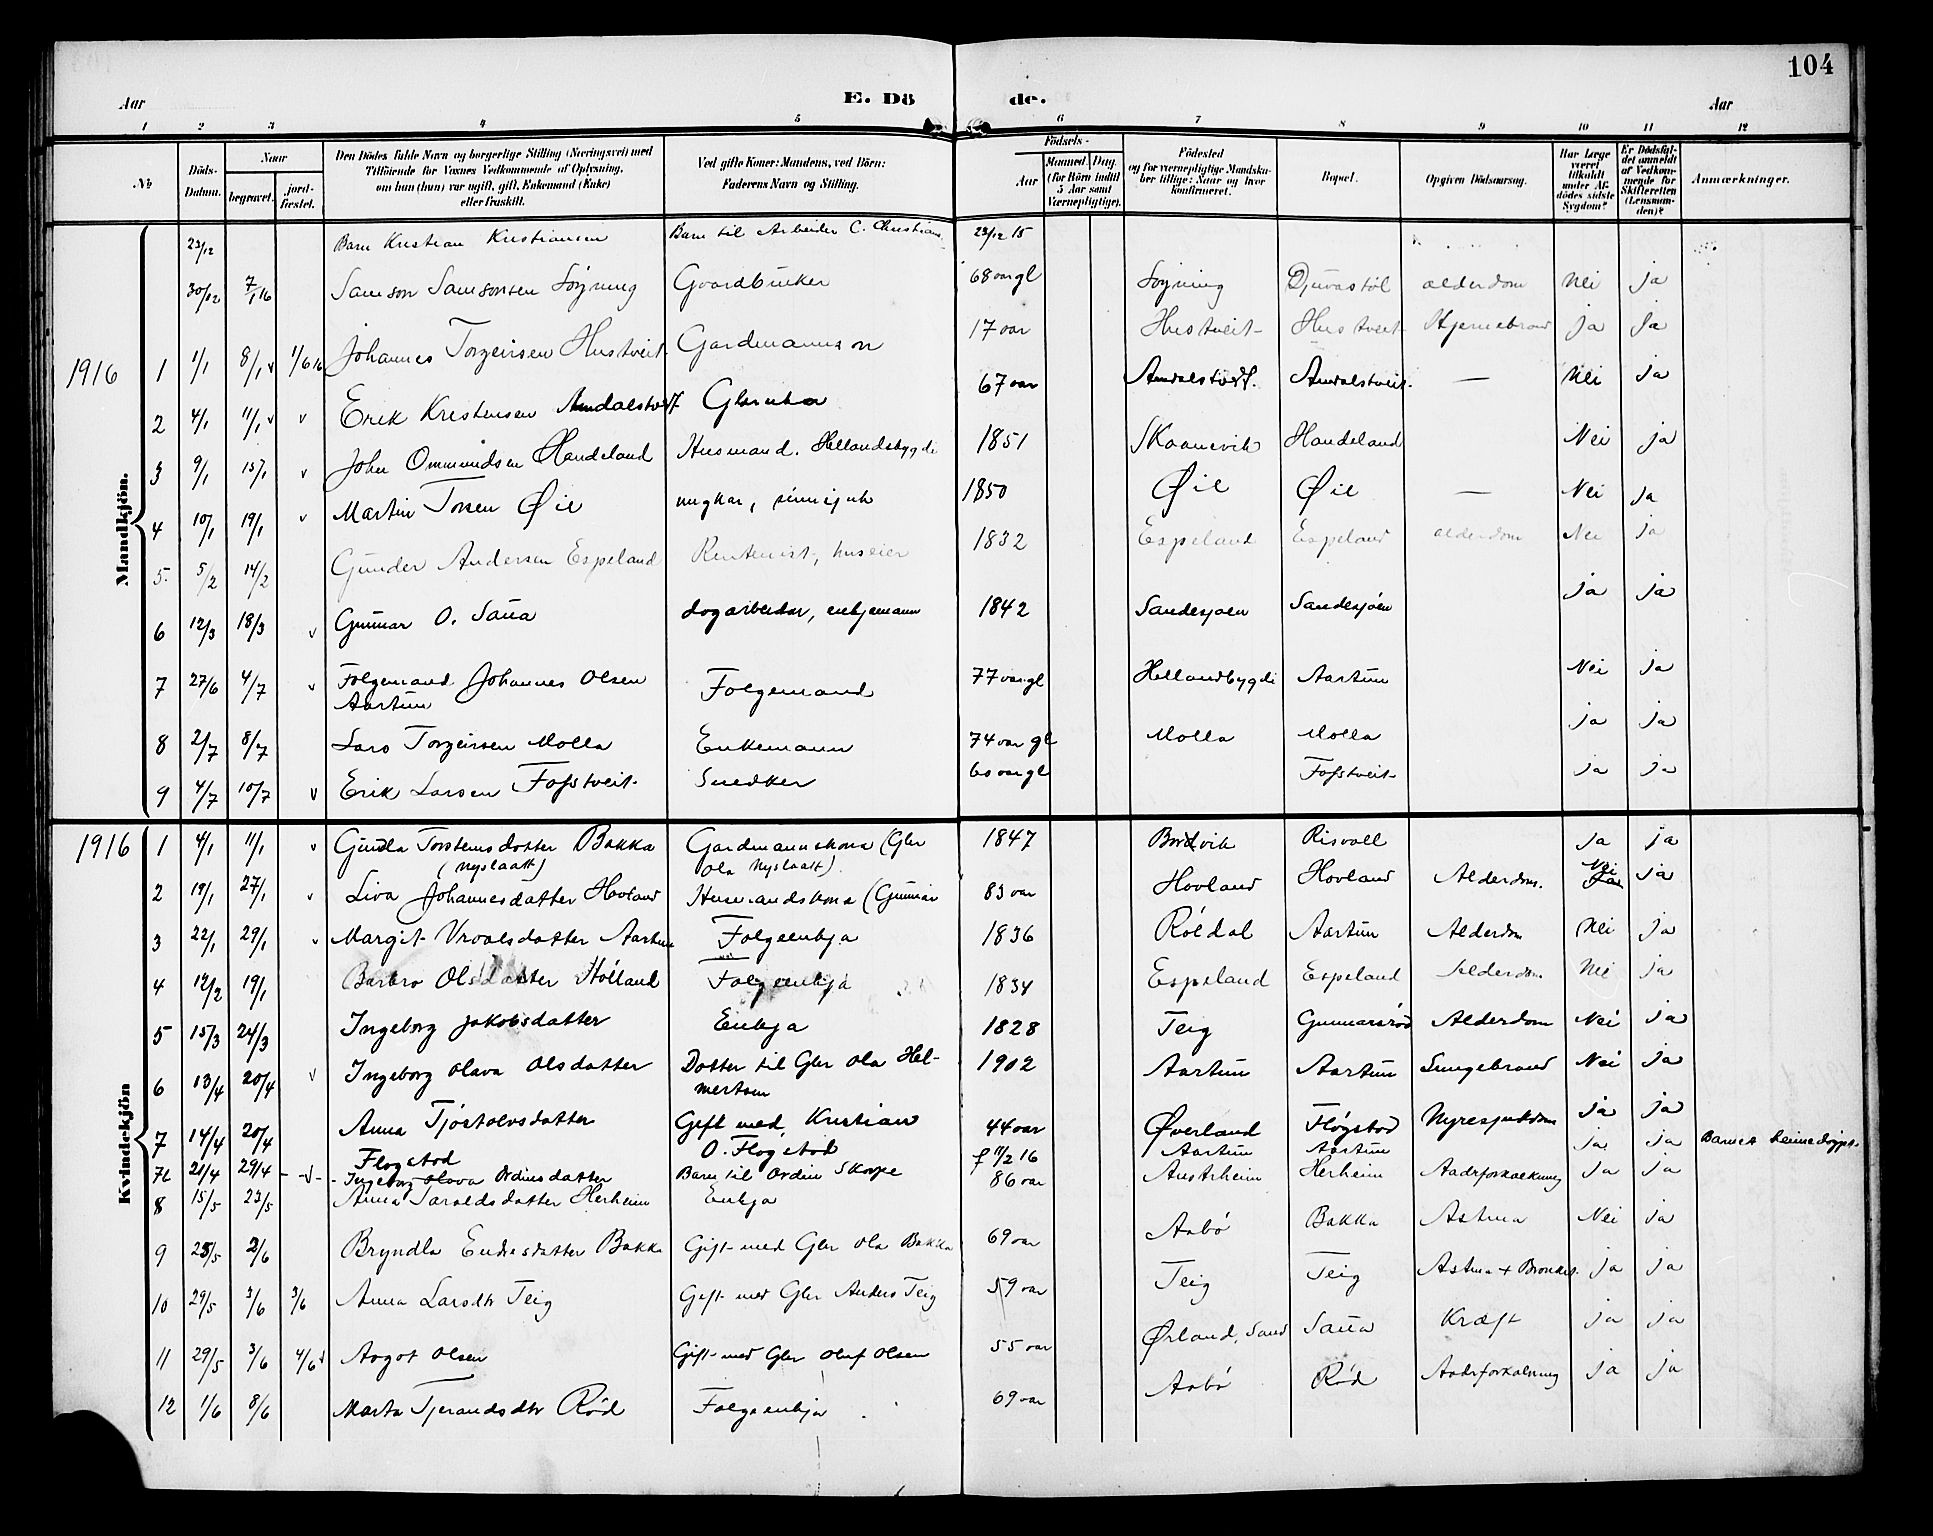 104
Aar E. Dö de. Aar
1 2 3 4 5 6 7 8 9 10 11 12
No
Döds-Datum.
Naar
begravet.
jord-fæstet.
Den Dödes fulde Navn og borgerlige Stilling (Næringsvei) med
Tilföiende for Voxnes Vedkommende af Oplysning,
om han (hun) var ugift, gift, Enkemand (Enke)
eller fraskilt.
Ved gifte Koner: Mandens, ved Börn:
Faderens Navn og Stilling.
Födsels-
Aar
Maaned. Dag.
(for Börn indtil
5 Aar samt
Værnepligtige).
Födested
og for værnepligtige Mandska-
ber tillige: Naar og hvor
konfirmeret.
Bopæl.
Opgiven Dödsaarsag.
Har Læge
været
tilkaldt
under Af-
dödes sidste
Sygdom?
Er Dödsfal-
det anmeldt
af Vedkom-
mende for
Skifteretten
(Lensman-
den)?
Anmærkninger.
Mandkjön.
23/12 Barn Kristian Kristiansen Barn til Arbeider C. Christians 23/12 15
30/12 7/1 16 Samson Samsonsen Søyning Gaardbruker 68 aar gl Søyning Djuvastøl alderdom Nei ja
1916 1 1/1 8/1 v 1/6 16 Johannes Torgeirsen Hustveit Gardmannsson 17 aar Hustveit Hustveit Hjernebrand ja ja
2 4/1 11/1 v v Erik Kristensen Amdalstveit 67 aar Amdalstveit. Amdalstveit. — Nei ja
3 9/1 15/1 v John Ommundsen Handeland Husmand. Hellandsbygdi 1851 Skaanevik Handeland Nei ja
4 10/1 19/1 v Martin Torsen Øie ungkar, sinnsjuk 1850 Øie Øie — Nei ja
5. 5/2 14/2 Gunder Andersen Espeland Rentenist, huseier 1832 Espeland Espeland alderdom Nei ja
6 12/3 18/3 v Gunnar O. Saua dagarbeidar, enkjemann 1842 Sandesjoen Sandesjöen ja ja
7 27/6 4/7 v Folgemand Johannes Olsen
Aartun Folgemand 77 aar gl Hellandbygdi Aartun Nei ja
8 2/7 8/7 Lars Torgeirsen Molla Enkemann 74 aar gl Molla Molla ja ja
9 4/7 10/7 v Erik Larsen Fosstveit Snedker 60 aar gl Fosstveit ja ja
Kvindekjön
1916 1 4/1 11/1 v Gunla Torsteinsdotter Bakka
(Nyslaatt) Gardmannskona (Gbr
Ola Nyslaatt). 1847 Risvoll ja ja
2 19/1 27/1 v Liva Johannesdatter Hovland Husmandskona (Gunnar 83 aar Hovland Hovland Alderdom. Nei ja
3 22/1 29/1 v Margit Vroalsdatter Aartun Folgeenkja 1836 Röldal Aartun Alderdom Nei ja
4 12/2 19/1 Barbro Olsdatter Hölland Folgeenkja 1834 Espeland Espeland Alderdom Nei ja
5 15/3 24/3 Ingeborg Jakobsdatter Enkja 1828 Teig Gunnarsrød Alderdom Nei ja
6 13/4 20/4 v Ingeborg Olava Olsdatter Dotter til Gbr Ola Hel-
mertsen 1902 Aartun Aartun Lungebrand Nei ja
7 14/4 20/4 Anna Tjöstolvsdatter
Flogstod Gift med Kristian
O. Flogstod 44 aar Øverland Fløgstod Nyresjukdom ja ja
7b 21/4 29/4 - v - Ingeborg Olava Ordinsdatter Barn til Ordin Skorpe f 11/2 16 Aartun Aartun ja ja Barnet heimedøypt.
8 15/5 23/5 Anna Taraldsdatter Herheim Enkja 86 aar Austrheim Herheim Aadrforkalkning ja ja
9 25/5 2/6 Bryndla Endresdatter Bakka Gift med Gbr Ola Bakka 69 aar Aabö Bakka Astma Nei ja
10 29/5 3/6 3/6 Anna Larsdtr Teig Gift med Gbr Anders Teig 59 aar Teig Teig Astma + Bronkit. ja ja
11 29/5 3/6 4/6 v Aagot Olsen Gift med Gbr Oluf Olsen 55 aar Ørland, Sand Saua Kræft ja ja
12 1/6 8/6 Marta Tjerandsdtr Röd Folgeenkja 69 aar Aabö Röd Aadrforkalkning ja ja